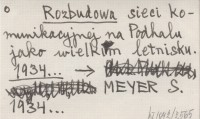 Rozbudowa sieci ko-
munikacyjnej na Podhalu
jako wielkim letnisku.
1934... →
MEYER S.
1934...